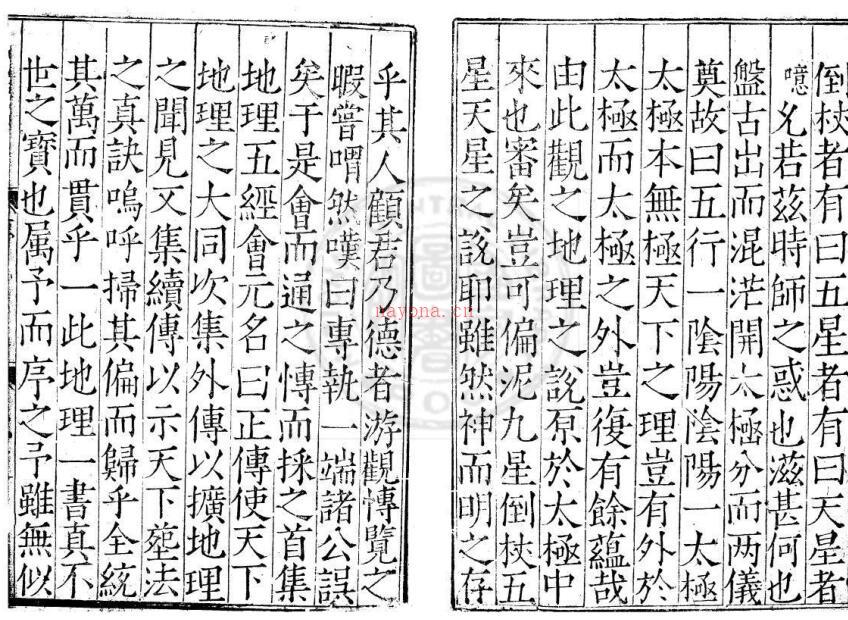 倒杖者有曰五星者有曰天星者
噫允若茲時師之惑也滋甚何也
盤古出而混茫開太極分而两儀
奠故曰五行一陰陽陰陽一太極
太極本無極天下之理豈有外於
太極而太極之外豈復有餘蘊哉
由此觀之地理之說原於太極中
來也審矣豈可偏泥九星倒杖五
星天星之說耶雖然神而明之存
乎其人顧君乃德者游觀愽覽之
暇嘗喟然嘆曰專執一端諸公誤
矣于是會而通之愽而採之首集
地理五經會元名曰正傳使天下
地理之大同次集外傳以擴地理
之聞見又集續傳以示天下塟法
之真訣嗚呼掃其偏而歸乎全統
其萬而貫乎一此地理一書真不
世之寶也属予而序之予雖無似
nayona.cn